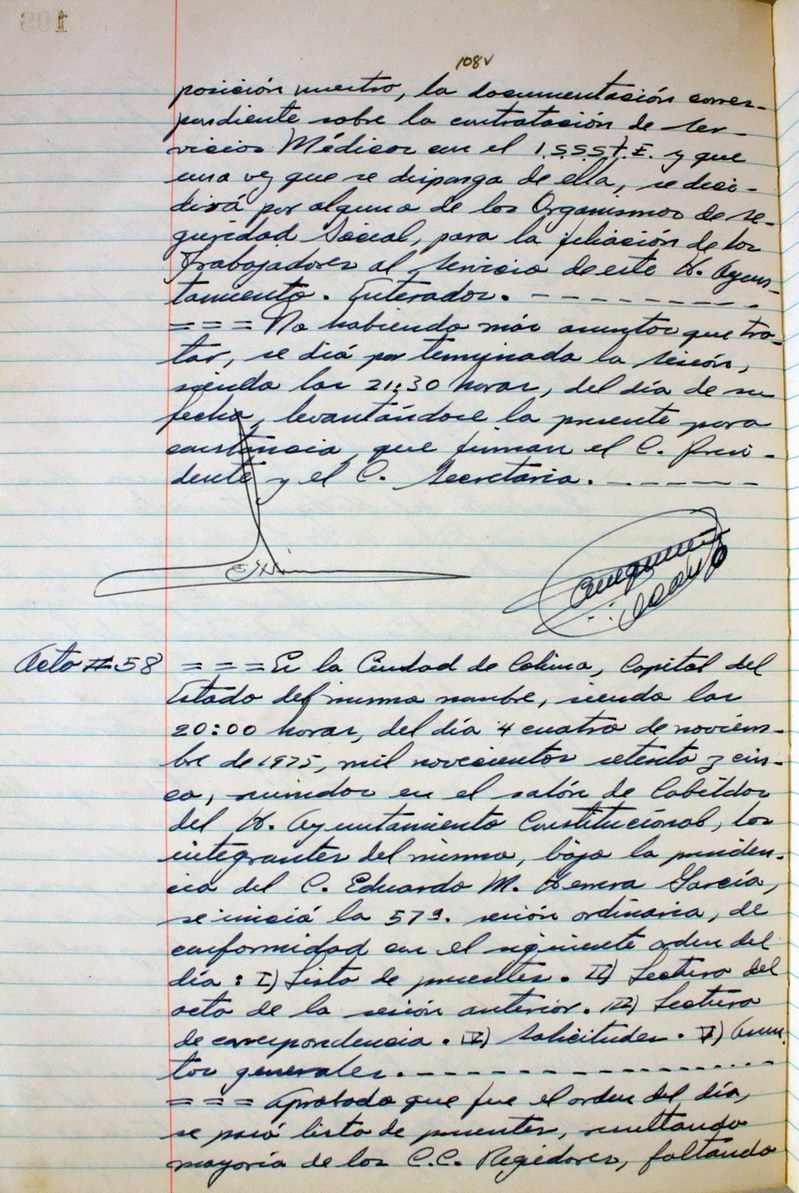 108v
posición nuestro, la documentación corres-
pondiente sobre la contratación de ser-
vicios Médicos con el I.S.S.S.T.E. y que
una vez que se disponga de ella, se deci-
dirá por alguno de los Organismos de se-
guridad Social, para la filiación de los
Trabajadores al servicio de este H. Ayun-
tamiento. Enterados. - - - - - - - - - -
= = = No habiendo más asuntos que tra-
tar, se dió por terminada la sesión,
siendo las 21:30 horas, del día de su
fecha, levantándose la presente para
constancia, que firman el C. Presi-
dente y el C. Secretario. - - - - - -
Acta # 58 = = = En la Ciudad de Colima, Capital del
Estado del mismo nombre, siendo las
20:00 horas, del día 4 cuatro de noviem-
bre de 1975, mil novecientos setenta y cin-
co, reunidos en el salón de Cabildos
del H. Ayuntamiento Constitucional, los
integrantes del mismo, bajo la presiden-
cia del C. Eduardo M. Herrera García,
se inició la 57a. sesión ordinaria, de
conformidad con el siguiente orden del
día: I) Lista de presentes. II) Lectura del
acta de la sesión anterior. III) Lectura
de correspondencia. IV) Solicitudes. V) Asun-
tos generales. - - - - - - - - - - - - - -
= = = Aprobado que fue el orden del día,
se pasó lista de presentes, resultando
mayoría de los C.C. Regidores, faltando